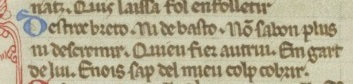 nat. Q̃us laissa fol en folletir
Destre breto. Ni de basto. Nõ sabon plus
ni descremir. Qui eu fier autrui. E m gart
de lui. E nois sap del mieu colp cobrir.